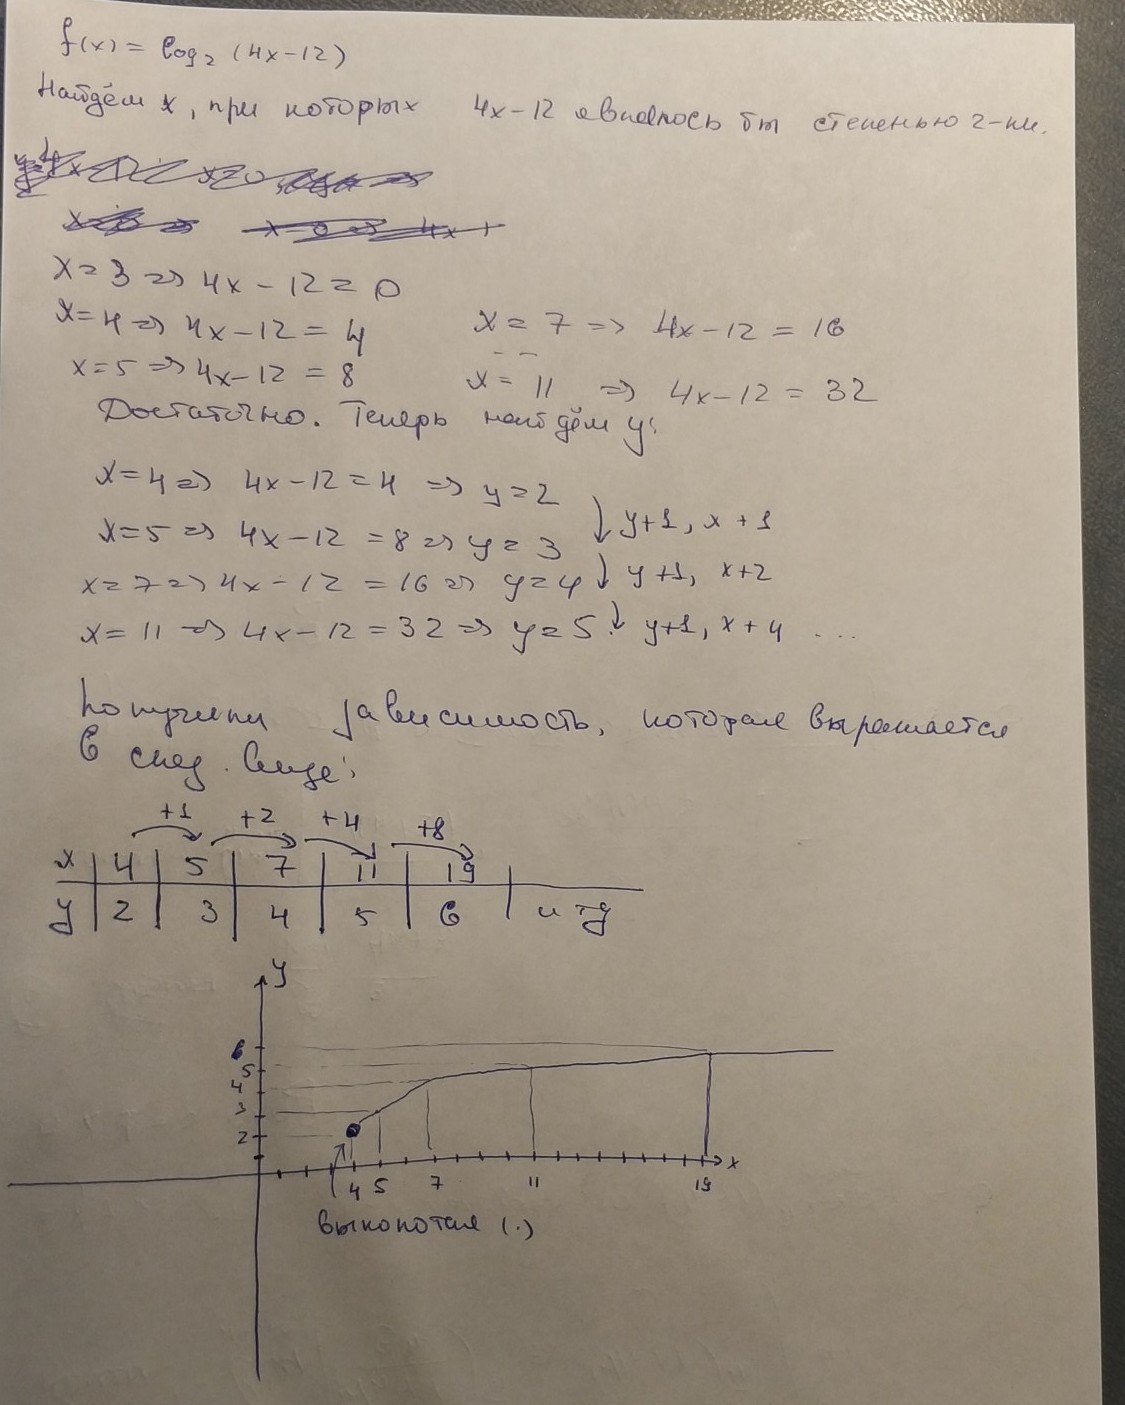 f(x) = log₂ (4x-12)
Найдём x, при которых 4x-12 являлось бы степенью 2-ки.
x=3 => 4x-12=0
x=4 => 4x-12=4
x=5 => 4x-12=8
x=7 => 4x-12=16
x=11 => 4x-12=32
Достаточно. Теперь найдём y:
x=4 => 4x-12=4 => y=2
↓ y+1, x+1
x=5 => 4x-12=8 => y=3
↓ y+1, x+2
x=7 => 4x-12=16 => y=4
x=11 => 4x-12=32 => y=5. ↓ y+1, x+4 ...
Получили зависимость, которая выражается
в след. виде:
+1 +2 +4 +8
x | 4 | 5 | 7 | 11 | 19 |
y | 2 | 3 | 4 | 5 | 6 | и тд
y
6
5
4
3
2
x
4 5 7 11 19
выколотая (.)